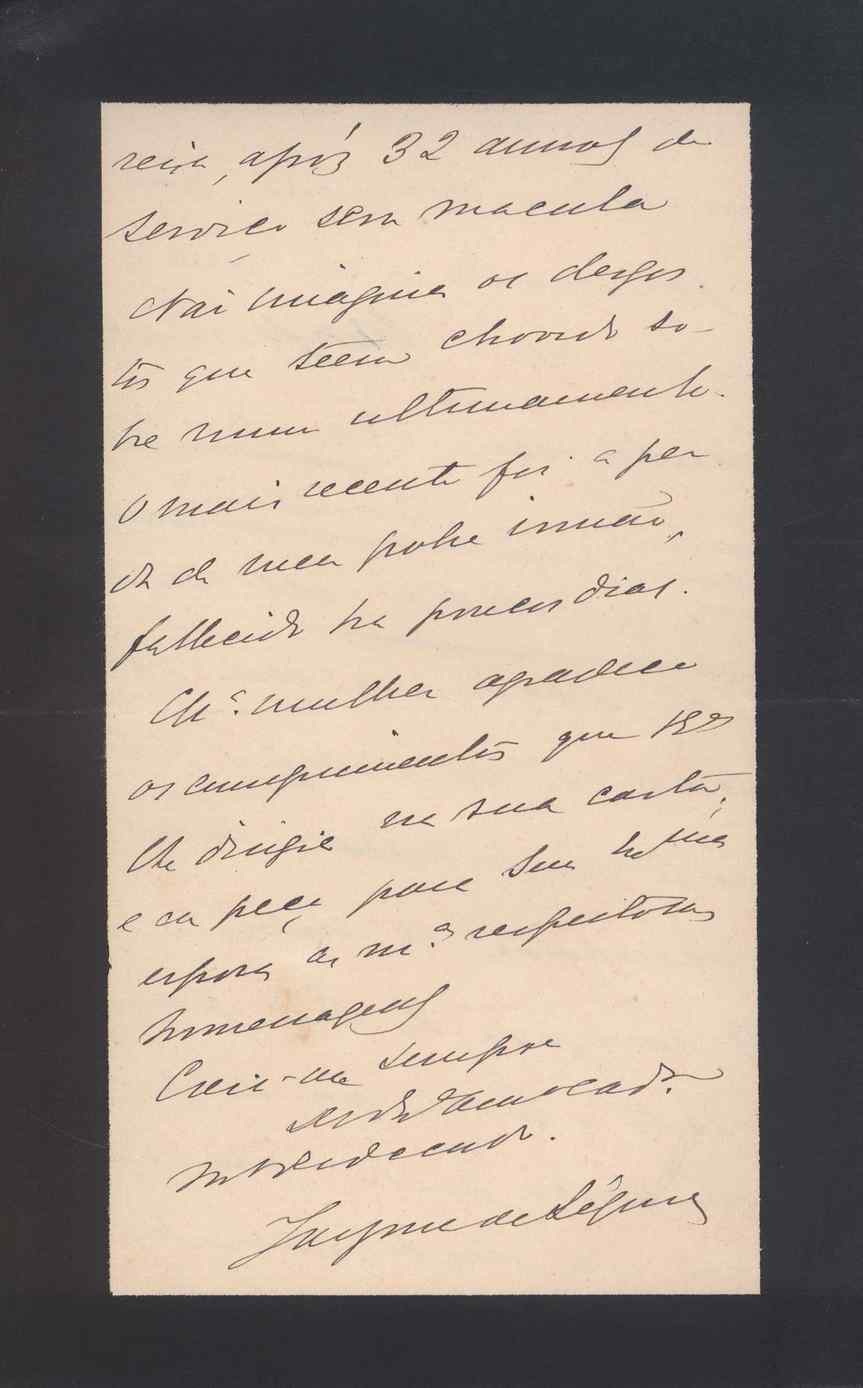 reira, após 32 annos de
serviço sem macula
Nai imagina os desgos
tos que teem chovido so-
bre mim ultimamente.
O mais recente foi a per
da de meu pobre irmão,
fallecido ha poucos dias.
Mª. mulher agradece
os cumprimentos que
lhe dirigie na sua carta,
e eu peço para sua
esposa as m.as respeitosas
homenagens
Creia-me sempre
Jayme de Séguier